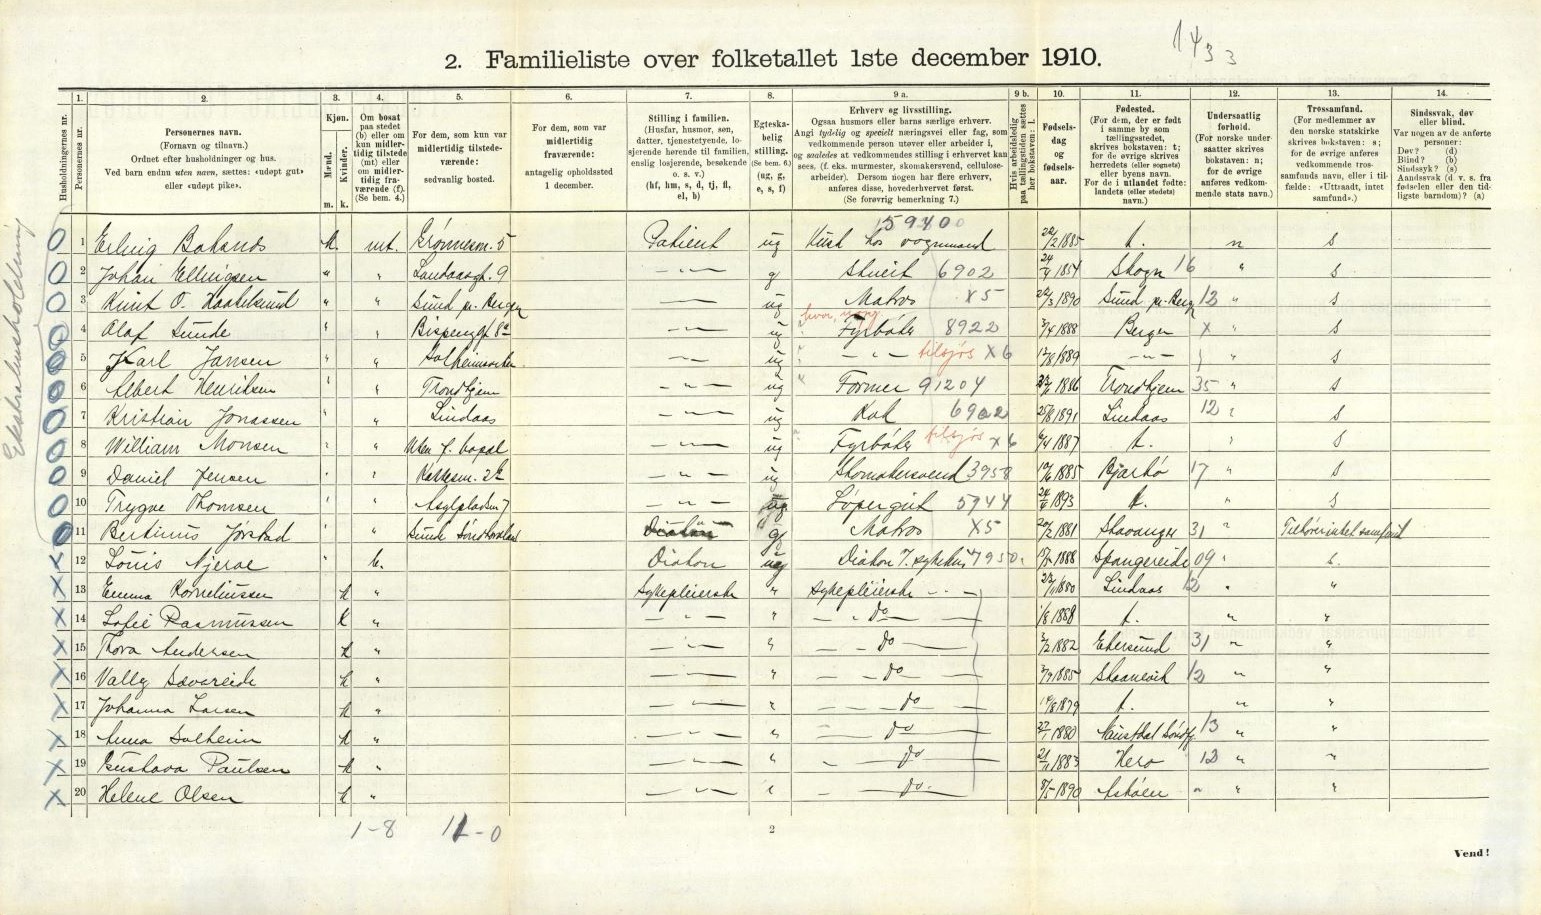 1433
2. Familieliste over folketallet 1ste december 1910.
1. 2. 3. 4. 5. 6. 7. 8. 9 a. 9 b. 10. 11. 12. 13. 14.
Husholdningernes nr.
Personernes nr.
Personernes navn.
(Fornavn og tilnavn.)
Ordnet efter husholdninger og hus.
Ved barn endnu uten navn, sættes: «udøpt gut»
eller «udøpt pike».
Kjøn.
Mænd.
Kvinder.
m. k.
Om bosat
paa stedet
(b) eller om
kun midler-
tidig tilstede
(mt) eller
om midler-
tidig fra-
værende (f).
(Se bem. 4.)
For dem, som kun var
midlertidig tilstede-
værende:
sedvanlig bosted.
For dem, som var
midlertidig
fraværende:
antagelig opholdssted
1 december.
Stilling i familien.
(Husfar, husmor, søn,
datter, tjenestetyende, lo-
sjerende hørende til familien,
enslig losjerende, besøkende
o. s. v.)
(hf, hm, s, d, tj, fl,
el, b)
Egteska-
belig
stilling.
(Se bem. 6.)
(ug, g,
e, s, f)
Erhverv og livsstilling.
Ogsaa husmors eller barns særlige erhverv.
Angi tydelig og specielt næringsvei eller fag, som
vedkommende person utøver eller arbeider i,
og saaledes at vedkommendes stilling i erhvervet kan
sees, (f. eks. murmester, skomakersvend, cellulose-
arbeider). Dersom nogen har flere erhverv,
anføres disse, hovederhvervet først.
(Se forøvrig bemerkning 7.)
Hvis arbeidsledig
paa tællingstiden sættes
her bokstaven: l.
Fødsels-
dag
og
fødsels-
aar.
Fødested.
(For dem, der er født
i samme by som
tællingsstedet,
skrives bokstaven: t;
for de øvrige skrives
herredets (eller sognets)
eller byens navn.
For de i utlandet fødte:
landets (eller stedets)
navn.)
Undersaatlig
forhold.
(For norske under-
saatter skrives
bokstaven: n;
for de øvrige
anføres vedkom-
mende stats navn.)
Trossamfund.
(For medlemmer av
den norske statskirke
skrives bokstaven: s;
for de øvrige anføres
vedkommende tros-
samfunds navn, eller i til-
fælde: «Uttraadt, intet
samfund».)
Sindssvak, døv
eller blind.
Var nogen av de anførte
personer:
Døv? (d)
Blind? (b)
Sindssyk? (s)
Aandssvak (d. v. s. fra
fødselen eller den tid-
ligste barndom)? (a)
59400
1 mt. 5 Patient ug Kusk hos vognmand 22/2 1885 t. n s
2 Johan Ellingsen " " 9 — " — g 6902 24/4 1854 Skogn 16 " s
3 Knut O. " " Sund pr. Bergen — " — ug Matros X5 1890 Sund pr. Bergen 12 " s
4 Olaf Sunde " " — " — ug Fyrbøter 8922 3/4 1888 Bergen X " s
5 Karl Jansen " " Solheimsviken — " — ug — " — tilsjøs X6 1889 — " — " s
6 Albert Henriksen " " Trondhjem — " — ug Former 91204 1886 Trondhjem 35 " s
7 Kristian Jonassen " " Lindaas — " — ug Kok 6902 25/8 1891 Lindaas 12 " s
8 William Monsen " " Uten f. bopæl — " — ug Fyrbøter tilsjøs X6 1887 t. " s
9 Daniel Jensen " " — " — ug Skomakersvend 3958 1885 Bjarkø 17 " s
10 Trygve Thomsen " " Asylpladsen 7 — " — ug Løpergut 5944 1893 t. " s
11 Bertinus Jørstad " " g Matros X5 1881 Stavanger 31 "
12 Louis Njerve " b. Diakon ug Diakon 7950 1888 Spangereide 09 " s.
13 Emma Korneliussen k " Sykepleierske " Sykepleierske 1880 Lindaas 12 " "
14 Sofie Rasmussen k " — " — " — " do — 1/8 1888 t. " "
15 Thora Andersen k " — " — " — do — 3/2 1882 Ekersund 31 " "
16 Vally Sævareide k " — " — " — do — 1885 Skaanevik 12 " "
17 Johanna Larsen k " — " — " — do — 1879 t. " "
18 Anna Solheim k " — " — " — do — 27/1 1880 13 " "
19 Gustava Paulsen k " — " — " — do — 21/11 1883 12 " "
20 Helene Olsen k " — " — " — do. — 8/5 1890 Askøen " " "
1-8 11-0
2
Vend!